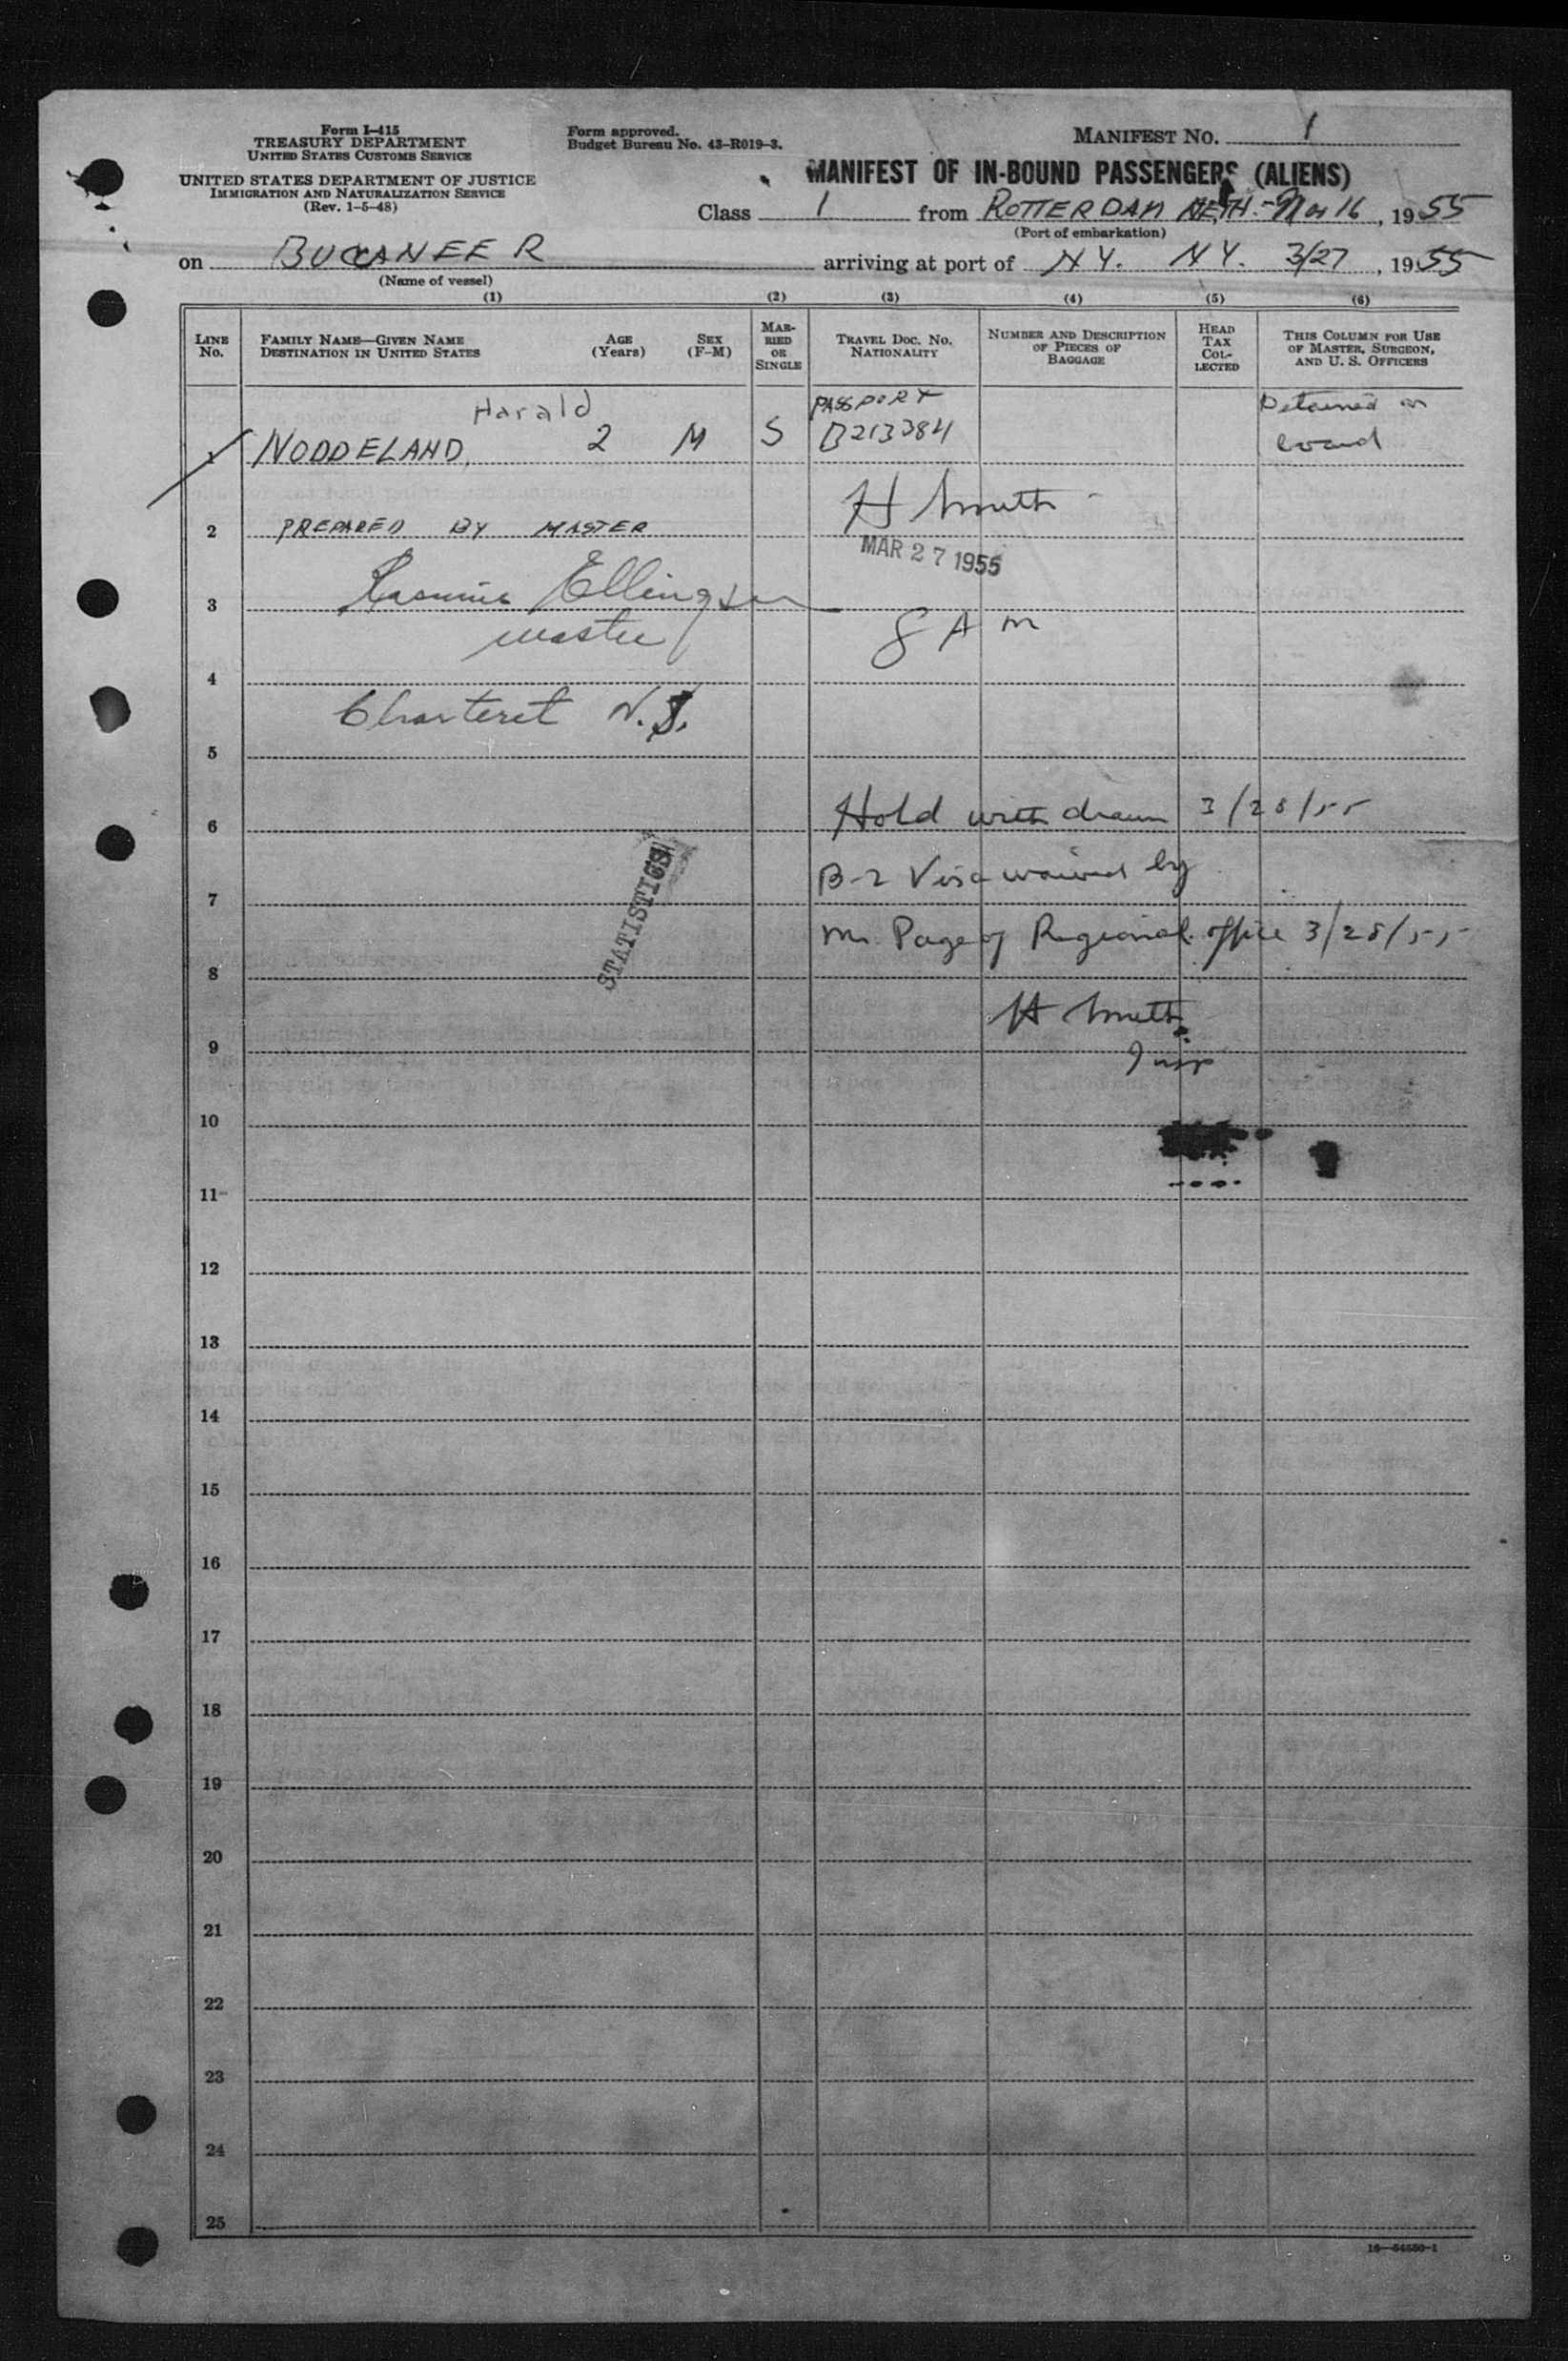 Form I-415
TREASURY DEPARTMENT
UNITED STATES CUSTOMS SERVICE
UNITED STATES DEPARTMENT OF JUSTICE
IMMIGRATION AND NATURALIZATION SERVICE
(Rev. 1-5-48)
Form approved.
Budget Bureau No. 43-R019-3.
MANIFEST NO. 1
MANIFEST OF IN-BOUND PASSENGERS (ALIENS)
Class 1 from ROTTERDAM NETH. - Mar 16, 1955
(Port of embarkation)
on BUCCANEER arriving at port of N Y. N Y. 3/27, 1955
(Name of vessel)
(1) (2) (3) (4) (5) (6)
LINE No.
FAMILY NAME—GIVEN NAME
DESTINATION IN UNITED STATES
AGE (Years)
SEX (F-M)
MARRIED OR SINGLE
TRAVEL DOC. No. NATIONALITY
NUMBER AND DESCRIPTION OF PIECES OF BAGGAGE
HEAD TAX COLLECTED
THIS COLUMN FOR USE OF MASTER, SURGEON, AND U. S. OFFICERS
Harald PASSPORT Detained on
1 NODDELAND, 2 M S B213384 board
H Smith
2 PREPARED BY MASTER
MAR 27 1955
3 Rasmus Ellingsen
master 8 A M
4
Charteret N.J.
5
6 Hold withdrawn 3/28/55
7 B-2 Visa waived by
STATISTICS
8 Mr. Page of Regional office 3/28/55
9 H Smith
Insp
10
11
12
13
14
15
16
17
18
19
20
21
22
23
24
25
16—54550-1